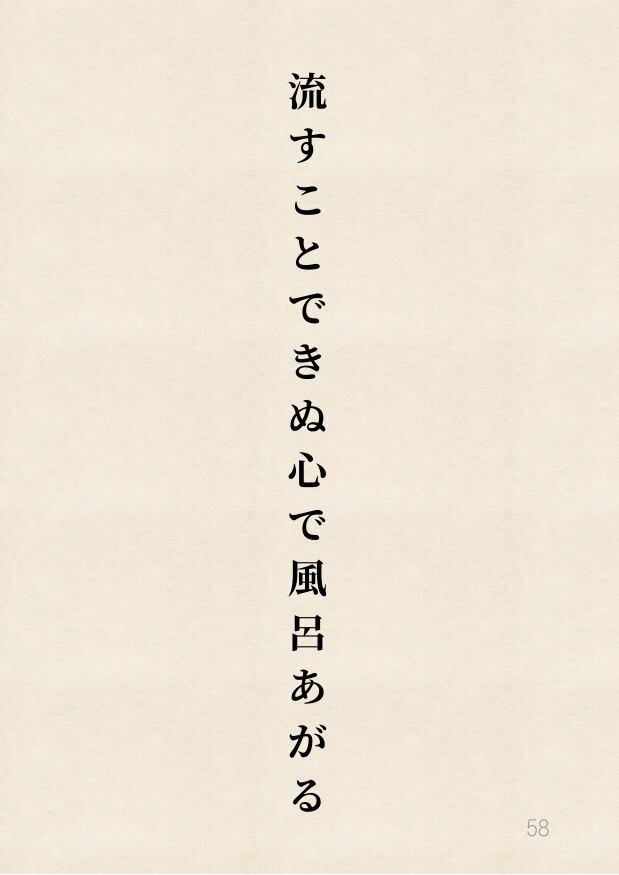 流すことできぬ心で風呂あがる
58